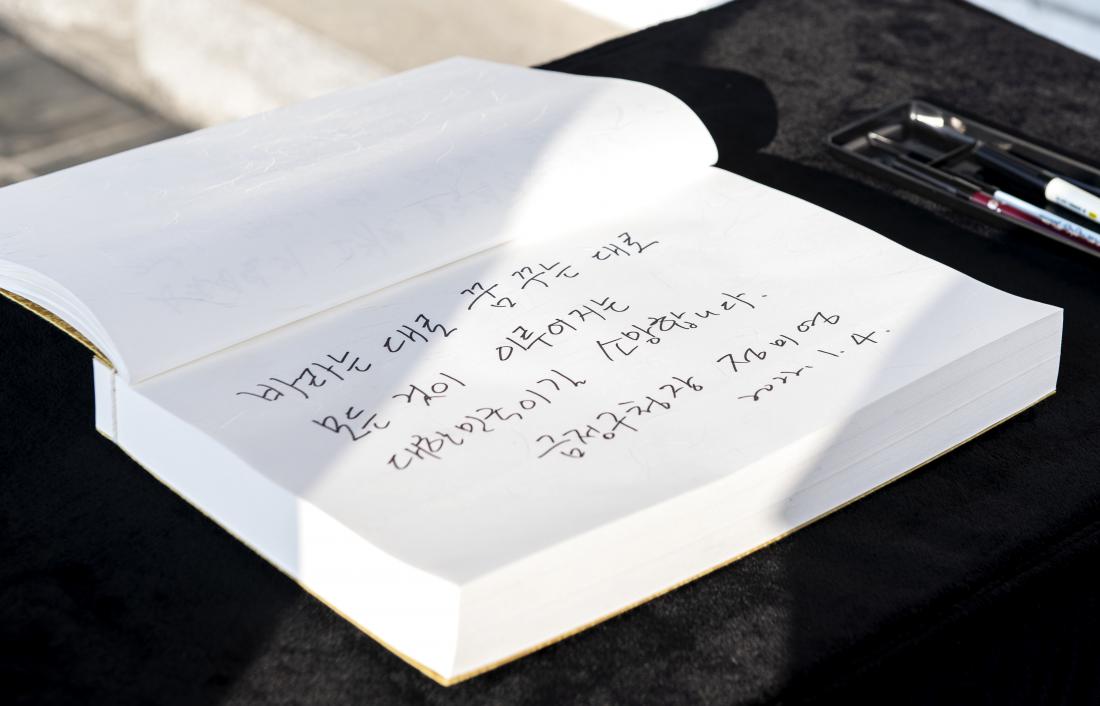 바라는 대로 꿈꾸는 대로
모든 것이 이루어지는
대한민국이길 소망합니다.
금정구청장 정미영
2022. 1. 4.